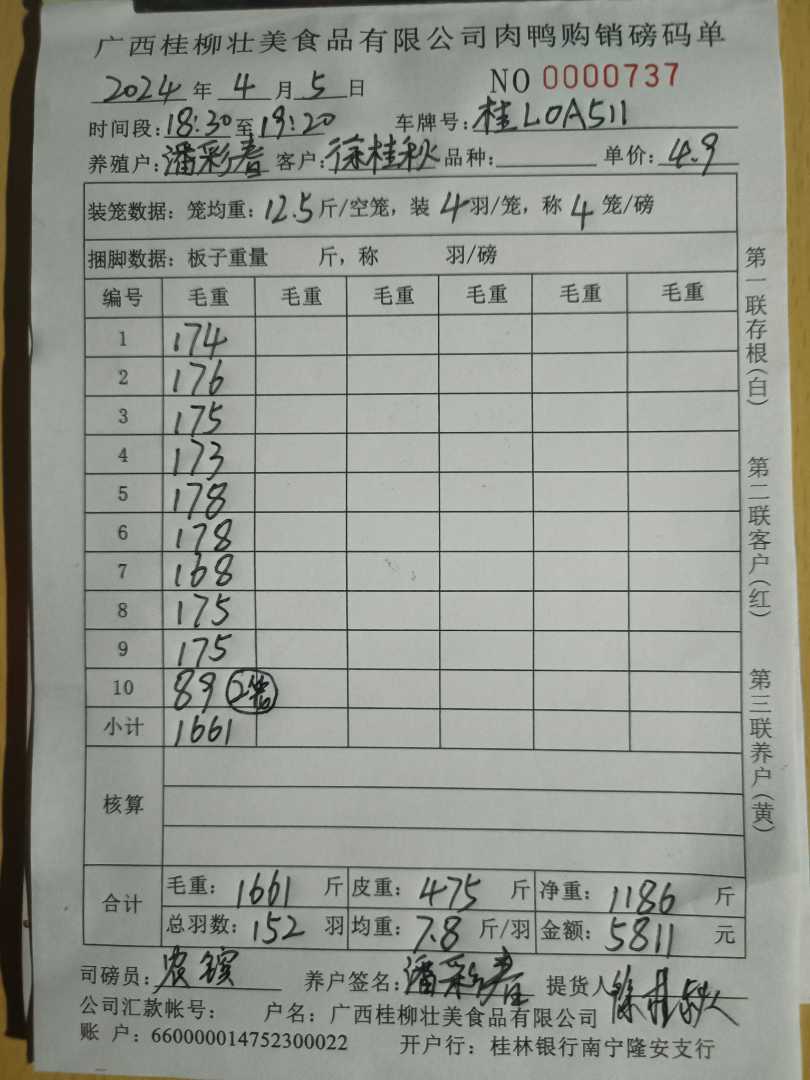 广西桂柳壮美食品有限公司肉鸭购销磅码单
2024 年 4 月 5 日 NO 0000737
时间段: 18:30 至 19:20 车牌号: 桂L0A511
养殖户: 潘彩春 客户: 徐桂秋 品种: 单价: 4.9
装笼数据: 笼均重: 12.5 斤/空笼, 装 4 羽/笼, 称 4 笼/磅
捆脚数据: 板子重量 斤, 称 羽/磅
编号 毛重 毛重 毛重 毛重 毛重 毛重
1 174
2 176
3 175
4 173
5 178
6 178
7 168
8 175
9 175
10 89
小计 1661
核算
合计 毛重: 1661 斤 皮重: 475 斤 净重: 1186 斤
总羽数: 152 羽 均重: 7.8 斤/羽 金额: 5811 元
司磅员: 农 养户签名: 潘彩春 提货人 徐桂秋
公司汇款帐号: 户名: 广西桂柳壮美食品有限公司
账 户: 660000014752300022 开户行: 桂林银行南宁隆安支行
第一联存根(白)
第二联客户(红)
第三联养户(黄)